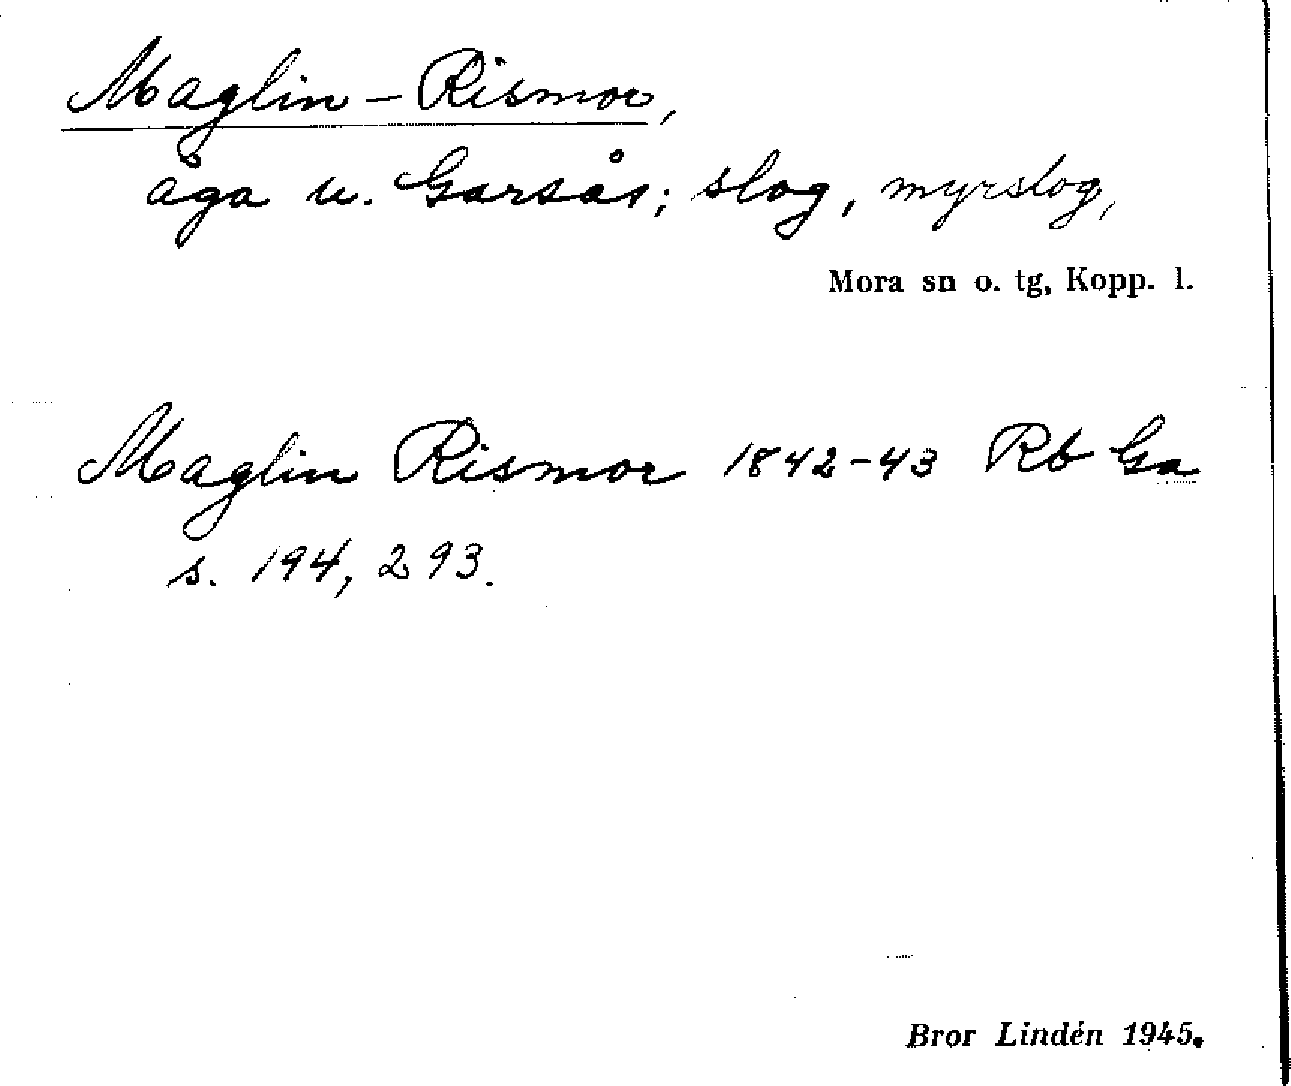 Maglin-Rismor,
äga u. Garsås; slog, myrslog,
Mora sn o. tg, Kopp. l.
Maglin Rismor 1842-43 Rb Ga
s. 194, 293.
Bror Lindén 1945.